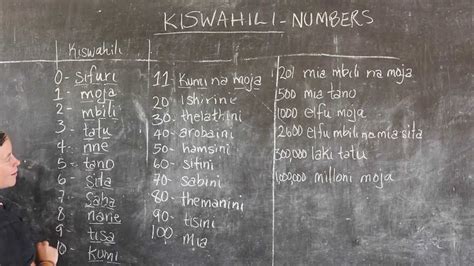 KISWAHILI - NUMBERS
Kiswahili
0- sifuri
1- moja
2- mbili
3- tatu
4- nne
5- tano
6- sita
7- saba
8- nane
9- tisa
10- kumi
11- Kumi na moja
20- ishirini
30- thelathini
40- arobaini
50- hamsini
60- sitini
70- sabini
80- themanini
90- tisini
100- mia
201 mia mbili na moja
500 mia tano
1000 elfu moja
2600 elfu mbili na mia sita
300,000 laki tatu
1,000,000 milioni moja